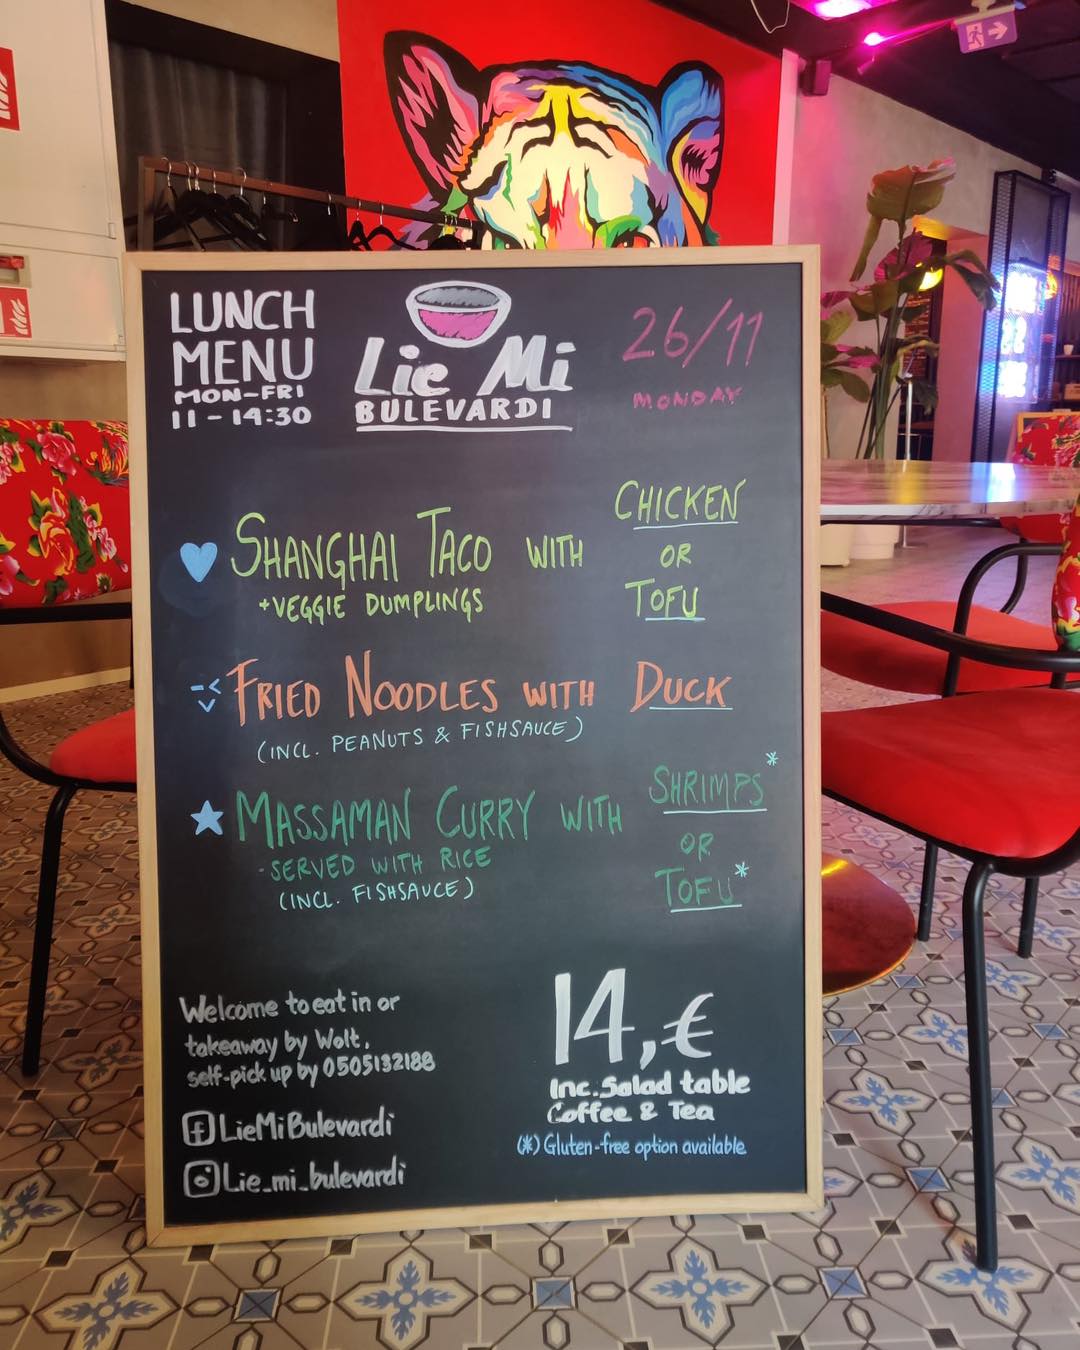 LUNCH
MENU
MON-FRI
11-14:30
Lie Mi
BULEVARDI
26/11
MONDAY
SHANGHAI TACO WITH CHICKEN OR TOFU
+VEGGIE DUMPLINGS
FRIED NOODLES WITH DUCK
(INCL. PEANUTS & FISHSAUCE)
MASSAMAN CURRY WITH SHRIMPS* OR TOFU*
-SERVED WITH RICE
(INCL. FISHSAUCE)
Welcome to eat in or
takeaway by Wolt.
self-pick up by 0505132188
LieMiBulevardi
Lie_mi_bulevardi
14,€
Inc. Salad table
Coffee & Tea
(*) Gluten-free option available